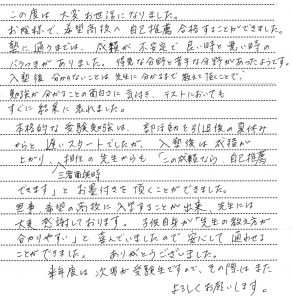 この度は大変お世話になりました。
お陰様で、希望高校へ自己推薦合格することができました。
塾に通うまでは、成績が不安定で良い時と悪い時の
バラつきがありました。得意な分野と苦手な分野があったようです。
入塾後 分からないことは先生に分かるまで教えて頂くことで、
勉強が分かることの面白さに気付き、テストにおいても
すぐに結果に表れました。
本格的な受験勉強は、部活動を引退後の夏休み
からと遅いスタートでしたが、入塾後は成績が
上がり、担任の先生からも「この成績なら、自己推薦
三者面談時
できます」とお墨付きを頂くことができました。
無事、希望の高校に入学することが出来、先生には
大変感謝しております。子供自身が「先生の教え方が
分かりやすい」と喜んでいましたので安心して通わせる
ことができました。ありがとうございました。
来年度は次男が受験生ですので、その際はまた
よろしくお願いします。